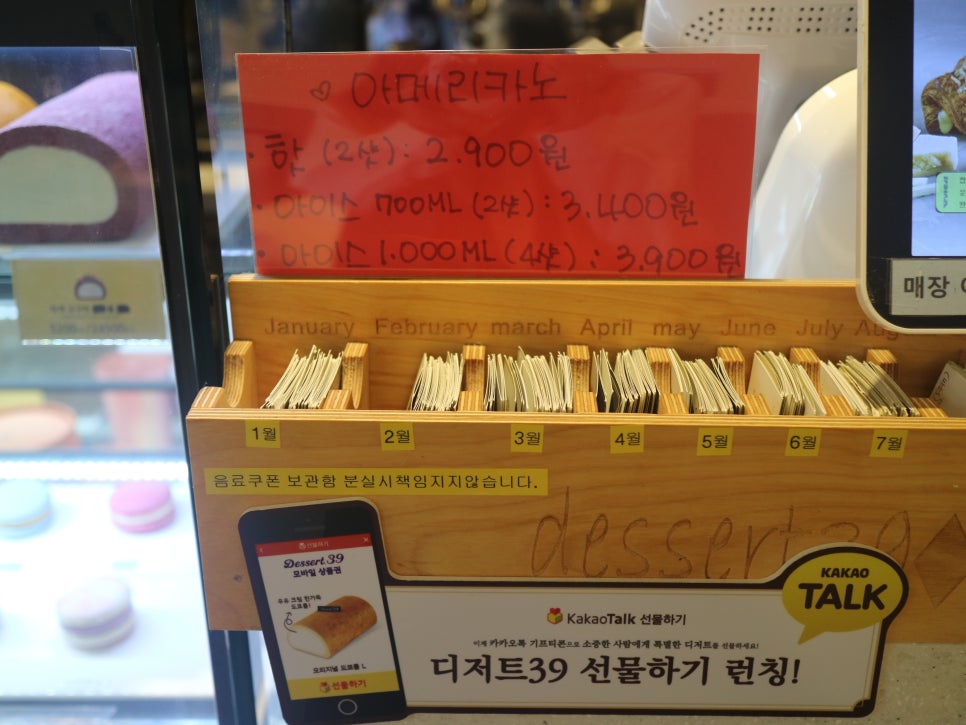 ♡ 아메리카노
· 핫 (2샷) : 2.900원
· 아이스 700ML (2샷) : 3.400원
· 아이스 1.000ML (4샷) : 3.900원
매장
January February march April may June July Aug
1월 2월 3월 4월 5월 6월 7월
음료쿠폰 보관함 분실시책임지지않습니다.
dessert 39
선물하기
Dessert 39
모바일 상품권
우유 크림 한가득
도쿄롤!
오리지널 도쿄롤 L
선물하기
KAKAO
TALK
KakaoTalk 선물하기
이제 카카오톡 기프티콘으로 소중한 사람에게 특별한 디저트를 선물하세요!
디저트39 선물하기 런칭!